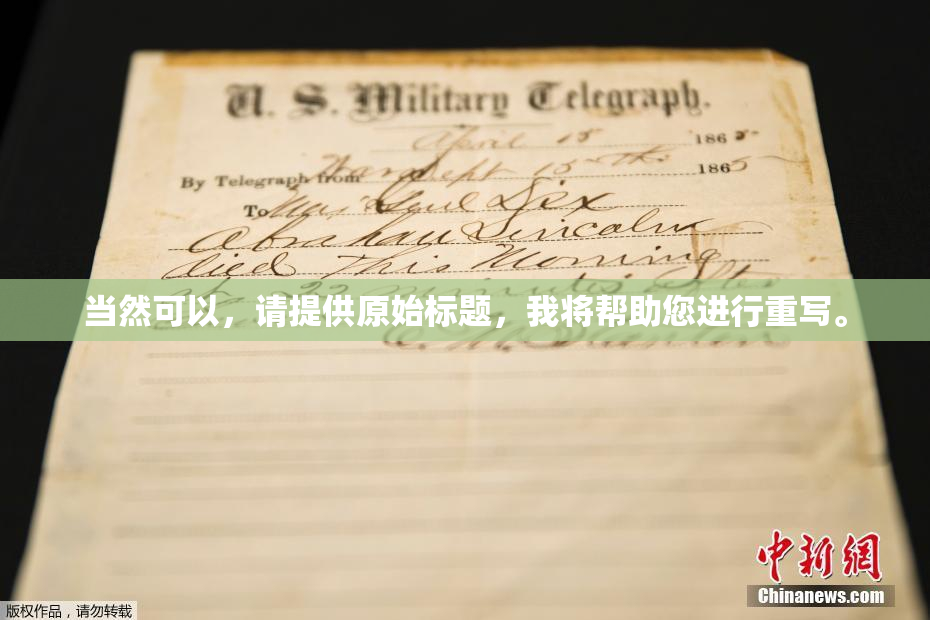 U. S. Military Telegraph.
April 15 1865
By Telegraph from War Dept 15th 1865
To Maj Genl Dix
Abraham Lincoln
died This Morning
at 22 minutes after
当然可以，请提供原始标题，我将帮助您进行重写。
中新网
Chinanews.com
版权作品，请勿转载